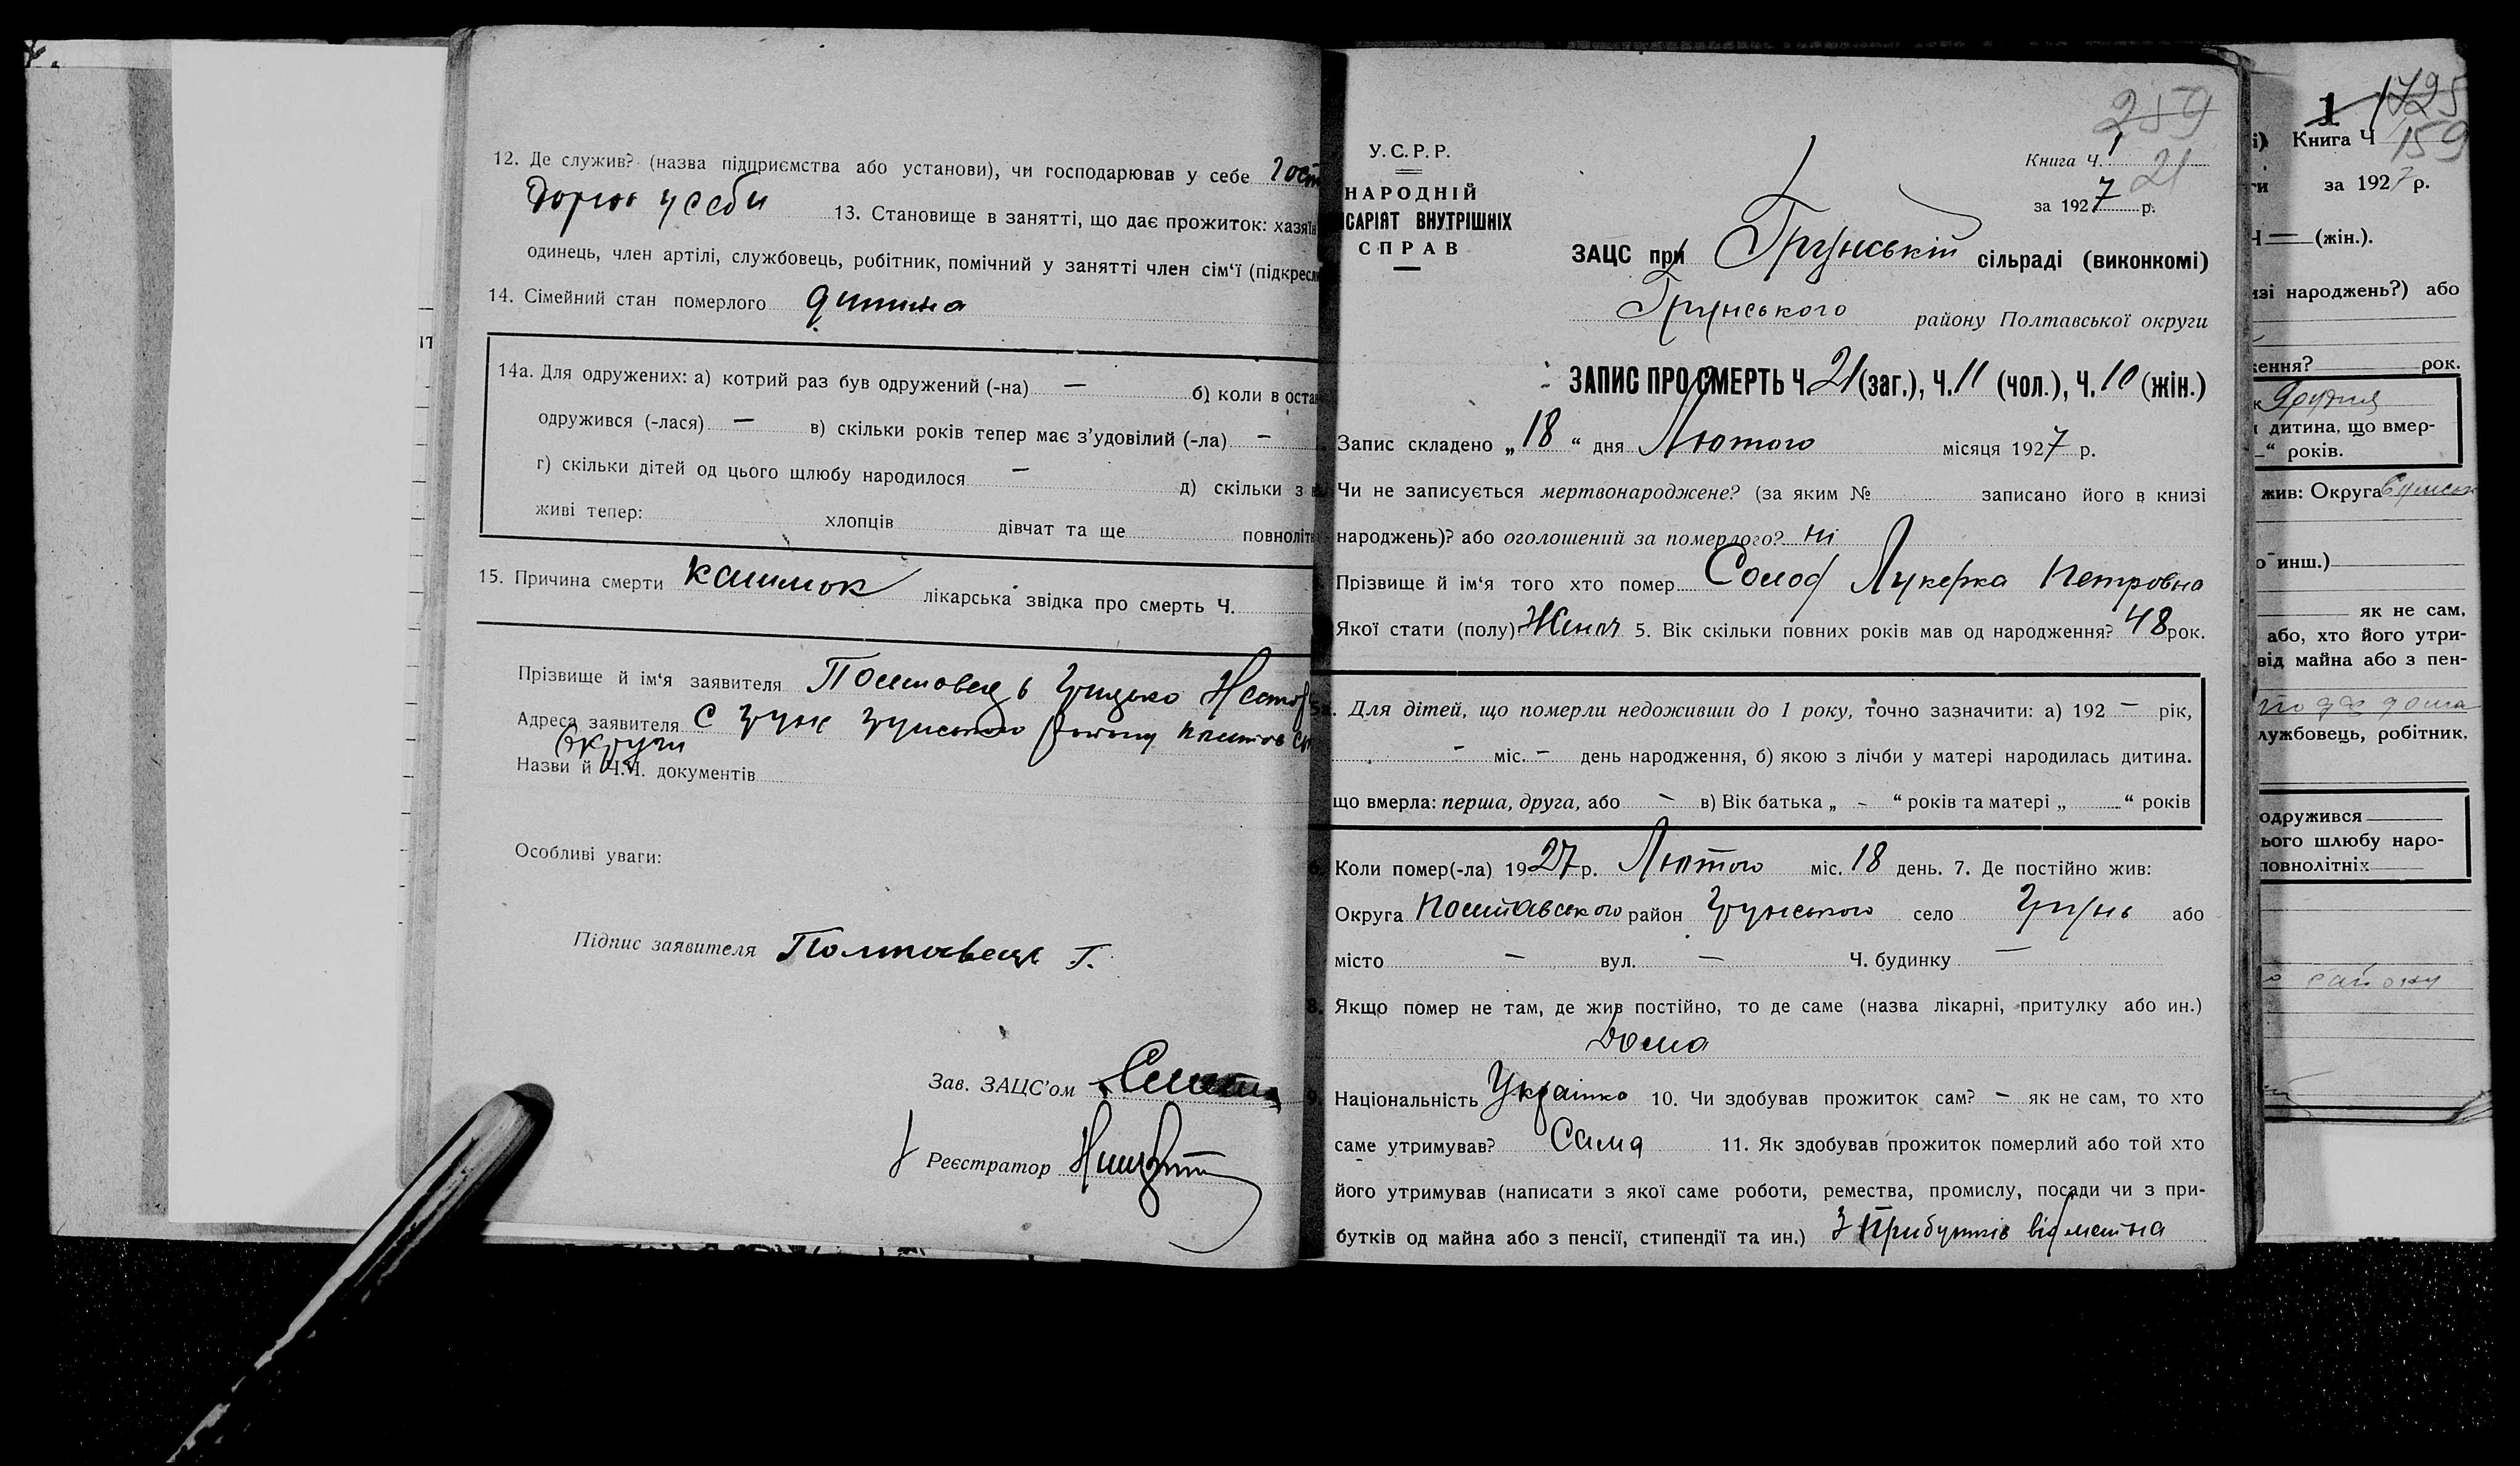 12. Де служив? (назва підприємства або установи), чи господарював у себе
у себи 13. Становище в занятті, що дає прожиток: хазяїн
одинець, член артілі, службовець, робітник, помічний у занятті член сім'ї (підкресл
14. Сімейний стан померлого дитина
14а. Для одружених: а) котрий раз був одружений (-на) — б) коли в оста
одружився (-лася) — в) скільки років тепер має з'удовілий (-ла) —
г) скільки дітей од цього шлюбу народилося — д) скільки з
живі тепер: хлопців дівчат та ще повноліт
15. Причина смерти кашлюк лікарська звідка про смерть Ч.
Прізвище й ім'я заявителя Полтовець Грицько
Адреса заявителя с Грунь Грунського району
Округи
Назви й Ч.Ч. документів
Особливі уваги:
Підпис заявителя Полтавець Г.
Зав. ЗАЦС'ом
Реєстратор
259
У.С.Р.Р.
НАРОДНІЙ
ІСАРІЯТ ВНУТРІШНІХ
СПРАВ
Книга Ч. 1
21
за 1927 р.
ЗАЦС при Грунській сільраді (виконкомі)
Грунського району Полтавської округи
ЗАПИС ПРО СМЕРТЬ Ч. 21 (заг.), Ч. 11 (чол.), Ч. 10 (жін.)
Запис складено „18“ дня Лютого місяця 1927 р.
Чи не записується мертвонароджене? (за яким № записано його в книзі
народжень)? або оголошений за померлого? ні
Прізвище й ім'я того хто помер Солод Лукерка Петровна
Якої стати (полу) Жіноч 5. Вік скільки повних років мав од народження? 48 рок.
5а. Для дітей, що померли недоживши до 1 року, точно зазначити: а) 192 — рік,
— міс. — день народження, б) якою з лічби у матері народилась дитина.
що вмерла: перша, друга, або — в) Вік батька „ - “ років та матері „ “ років
6. Коли помер(-ла) 1927 р. Лютого міс. 18 день. 7. Де постійно жив:
Округа Полтавського район Грунського село Грунь або
місто — вул. — Ч. будинку —
8. Якщо помер не там, де жив постійно, то де саме (назва лікарні, притулку або ин.)
Дома
9. Національність Українка 10. Чи здобував прожиток сам? — як не сам, то хто
саме утримував? Сама 11. Як здобував прожиток померлий або той хто
його утримував (написати з якої саме роботи, ремества, промислу, посади чи з при-
бутків од майна або з пенсії, стипендії та ин.) З Прибутків від майна
1 1725
і) Книга Ч 159
ти за 1927 р.
Ч — (жін.).
изі народжень?) або
ження? рок.
Грудня
дитина, що вмер-
“ років.
жив: Округа Сумськ
о инш.)
як не сам,
або, хто його утри-
від майна або з пен-
лужбовець, робітник,
одружився
ього шлюбу наро-
повнолітніх